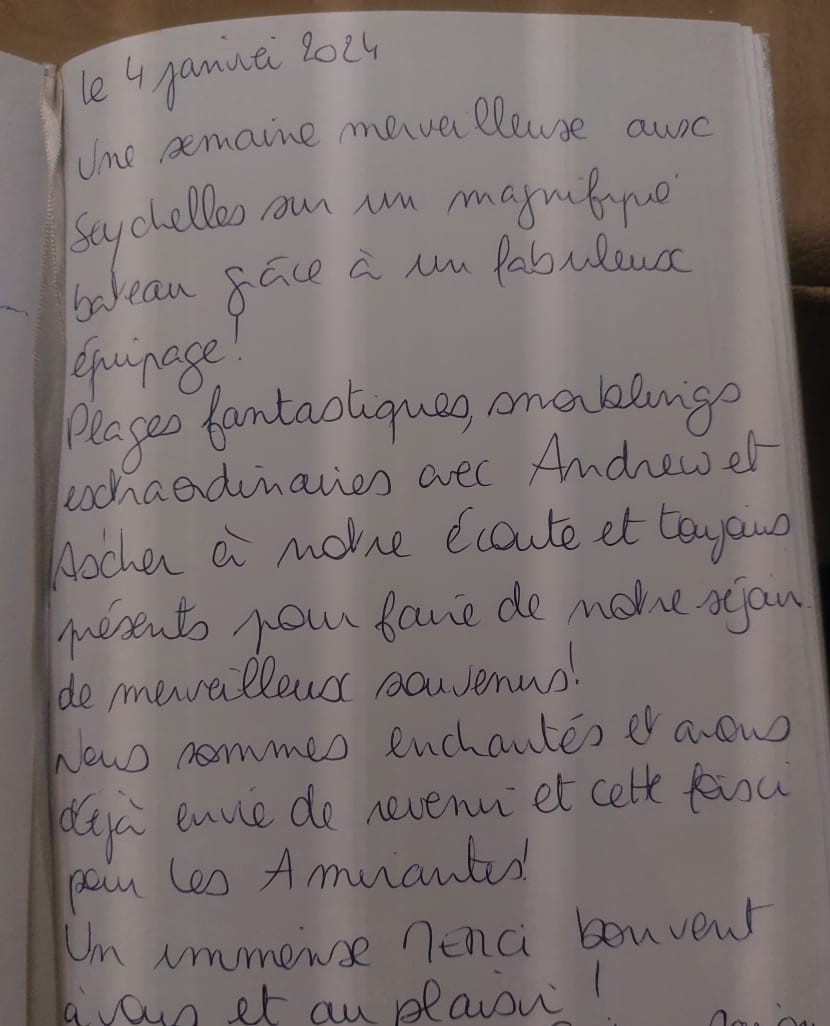 le 4 janvier 2024
Une semaine merveilleuse aux
Seychelles sur un magnifique
bateau grâce à un fabuleux
équipage!
Plages fantastiques, snorklings
extraordinaires avec Andrew et
Ascher à notre écoute et toujours
présents pour faire de notre séjour
de merveilleux souvenirs!
Nous sommes enchantés et avons
déjà envie de revenir et cette fois ci
pour les Amirantes!
Un immense merci bon vent
à vous et au plaisir!